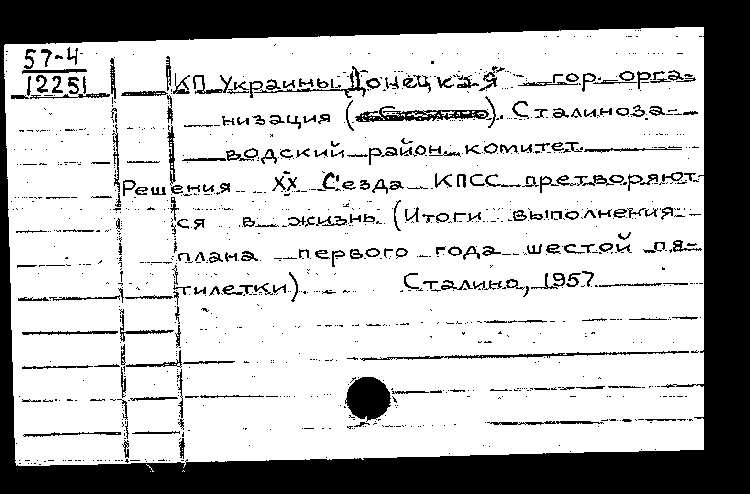 57-4
12251
КП Украины Донецкая гор. орга-
низация (). Сталиноза-
водский район. комитет.
Решения XX Сезда КПСС претворяют-
ся в жизнь (Итоги выполнения
плана первого года шестой пя-
тилетки). Сталино, 1957